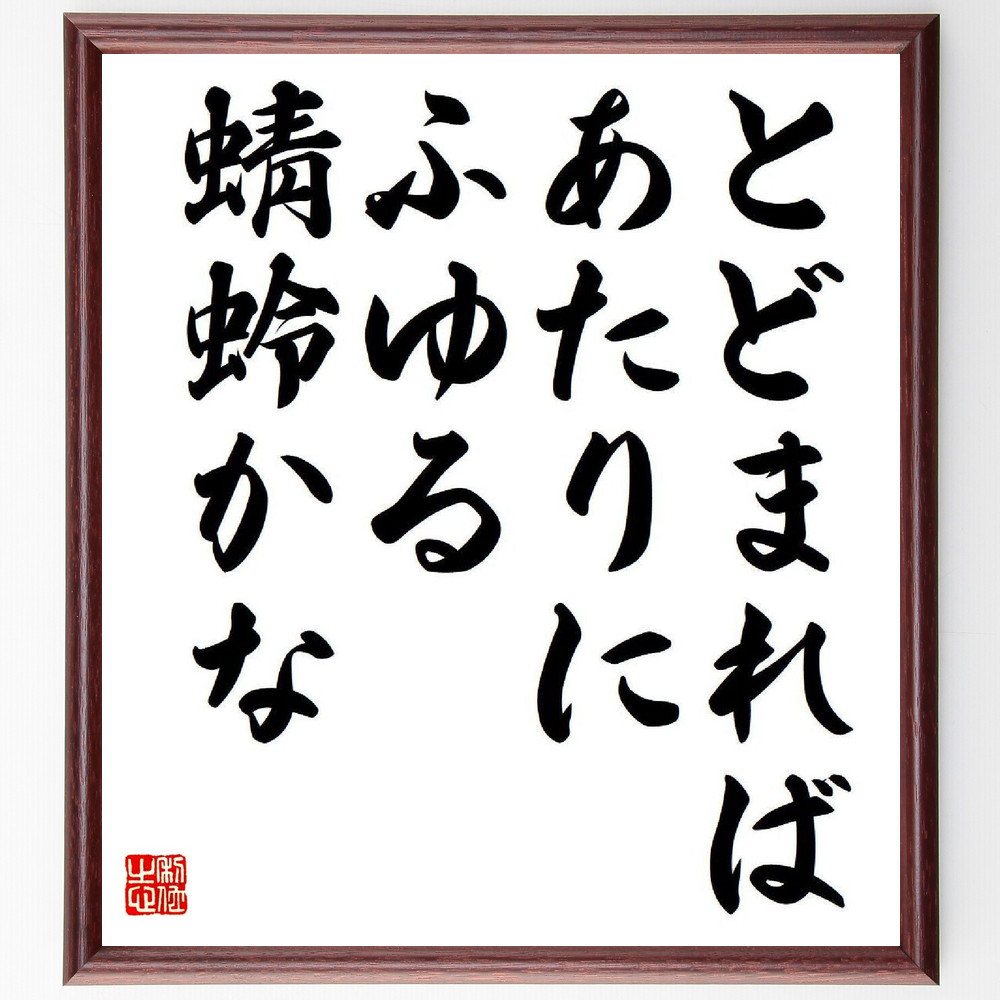 とどまれば
あたりに
ふゆる
蜻蛉かな